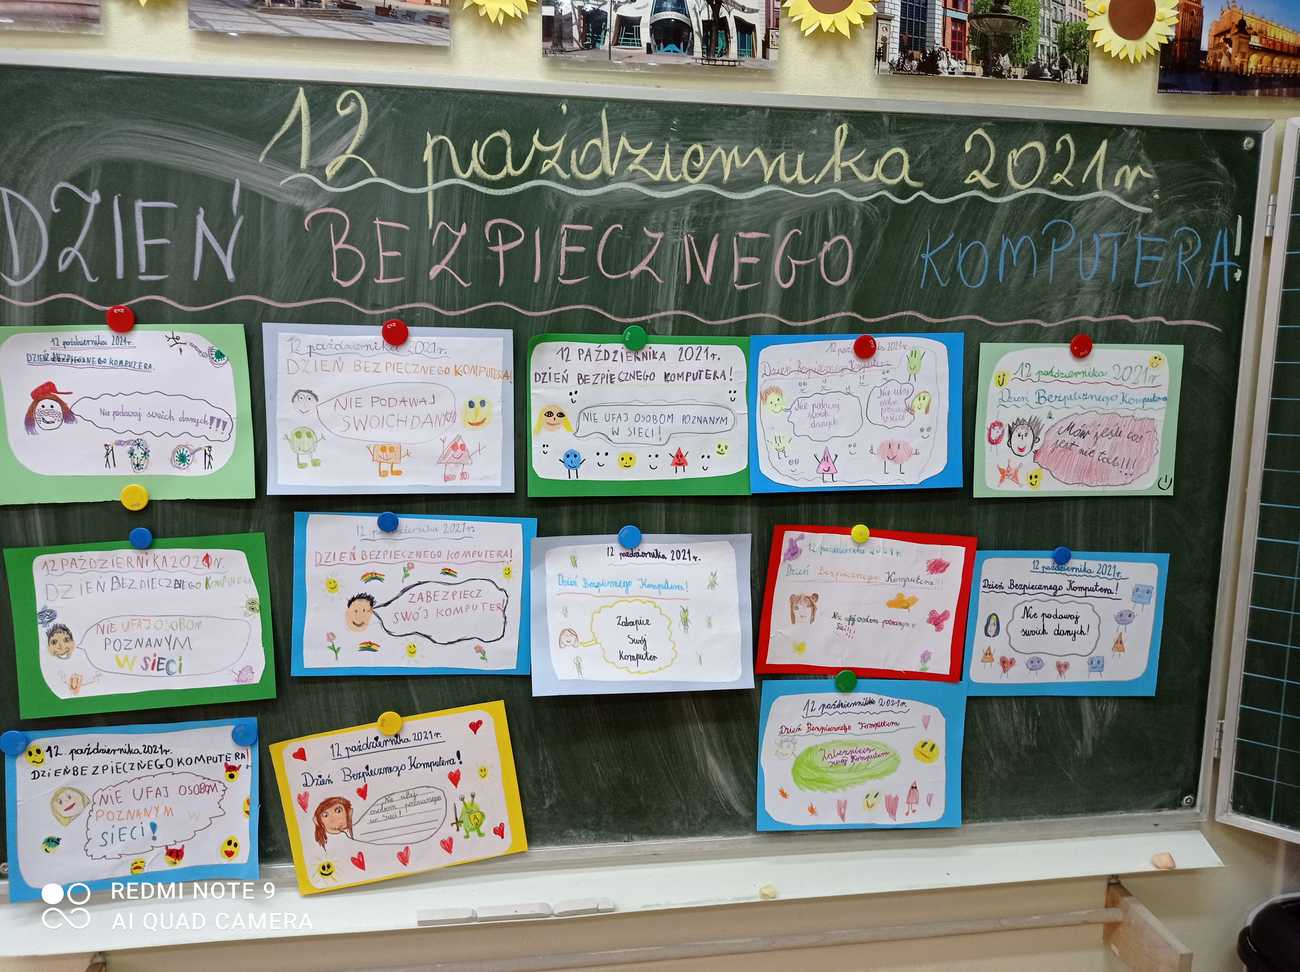 12 października 2021r.
DZIEŃ BEZPIECZNEGO KOMPUTERA!
12 października 2021r.
DZIEŃ BEZPIECZNEGO KOMPUTERA.
Nie podawaj swoich danych!!!
12 października 2021r.
DZIEŃ BEZPIECZNEGO KOMPUTERA!
NIE PODAWAJ
SWOICH DANYCH
12 PAŹDZIERNIKA 2021r.
DZIEŃ BEZPIECZNEGO KOMPUTERA!
NIE UFAJ OSOBOM POZNANYM
W SIECI!
12 października 2021r.
Dzień bezpiecznego komputera
Nie podawaj
swoich
danych
Nie ufaj
12 października 2021r
Dzień Bezpiecznego Komputera
Mów jeśli coś
jest nie tak!!!
12 PAŹDZIERNIKA 2021r.
DZIEŃ BEZPIECZNEGO KOMPUTERA
NIE UFAJ OSOBOM
POZNANYM
W SIECI
12 października 2021r.
DZIEŃ BEZPIECZNEGO KOMPUTERA!
ZABEZPIECZ
SWÓJ KOMPUTER
12 października 2021r.
Dzień Bezpiecznego Komputera!
Swój
Komputer
12 października 2021r
Dzień Bezpiecznego Komputera!!!
Nie ufaj osobom poznanym w
12 października 2021r.
Dzień Bezpiecznego Komputera!
Nie podawaj
swoich danych!
12 października 2021r.
DZIEŃ BEZPIECZNEGO KOMPUTERA!
NIE UFAJ OSOBOM
POZNANYM W
SIECI!
12 października 2021r.
Dzień Bezpiecznego Komputera!
Nie ufaj
osobom poznanym
w sieci!
12 października 2021r.
Dzień Bezpiecznego Komputera
Zabezpiecz
swój komputer
REDMI NOTE 9
AI QUAD CAMERA